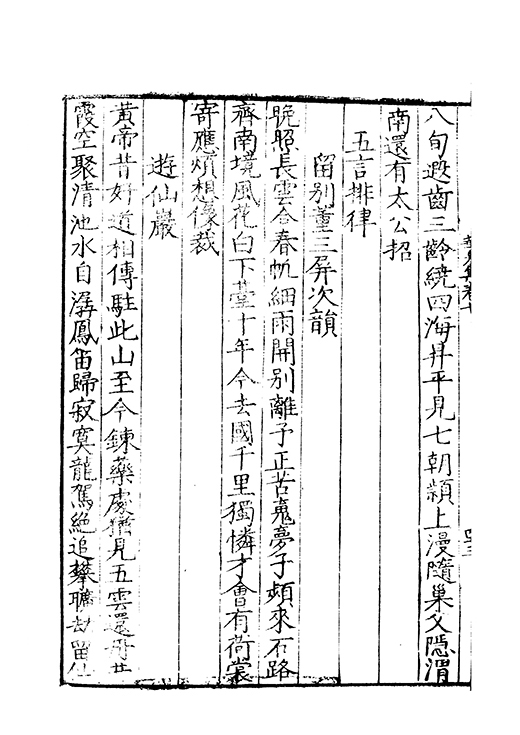 八旬遐齒三齡繞四海昇平見七朝潁上漫隨巢父隱渭
南還有太公招
五言排律
留別董三屏次韻
晩照長雲合春帆細雨開別離予正苦䰟夢子頻來石路
齊南境風花白下臺十年今去國千里獨憐才會有荷裳
寄應煩想像裁
遊仙巖
黃帝昔好道相傳駐此山至今鍊藥處猶見五雲還丹井
霞空聚清池水自潺鳳笛歸寂寞龍駕絕追攀曠劫留仙